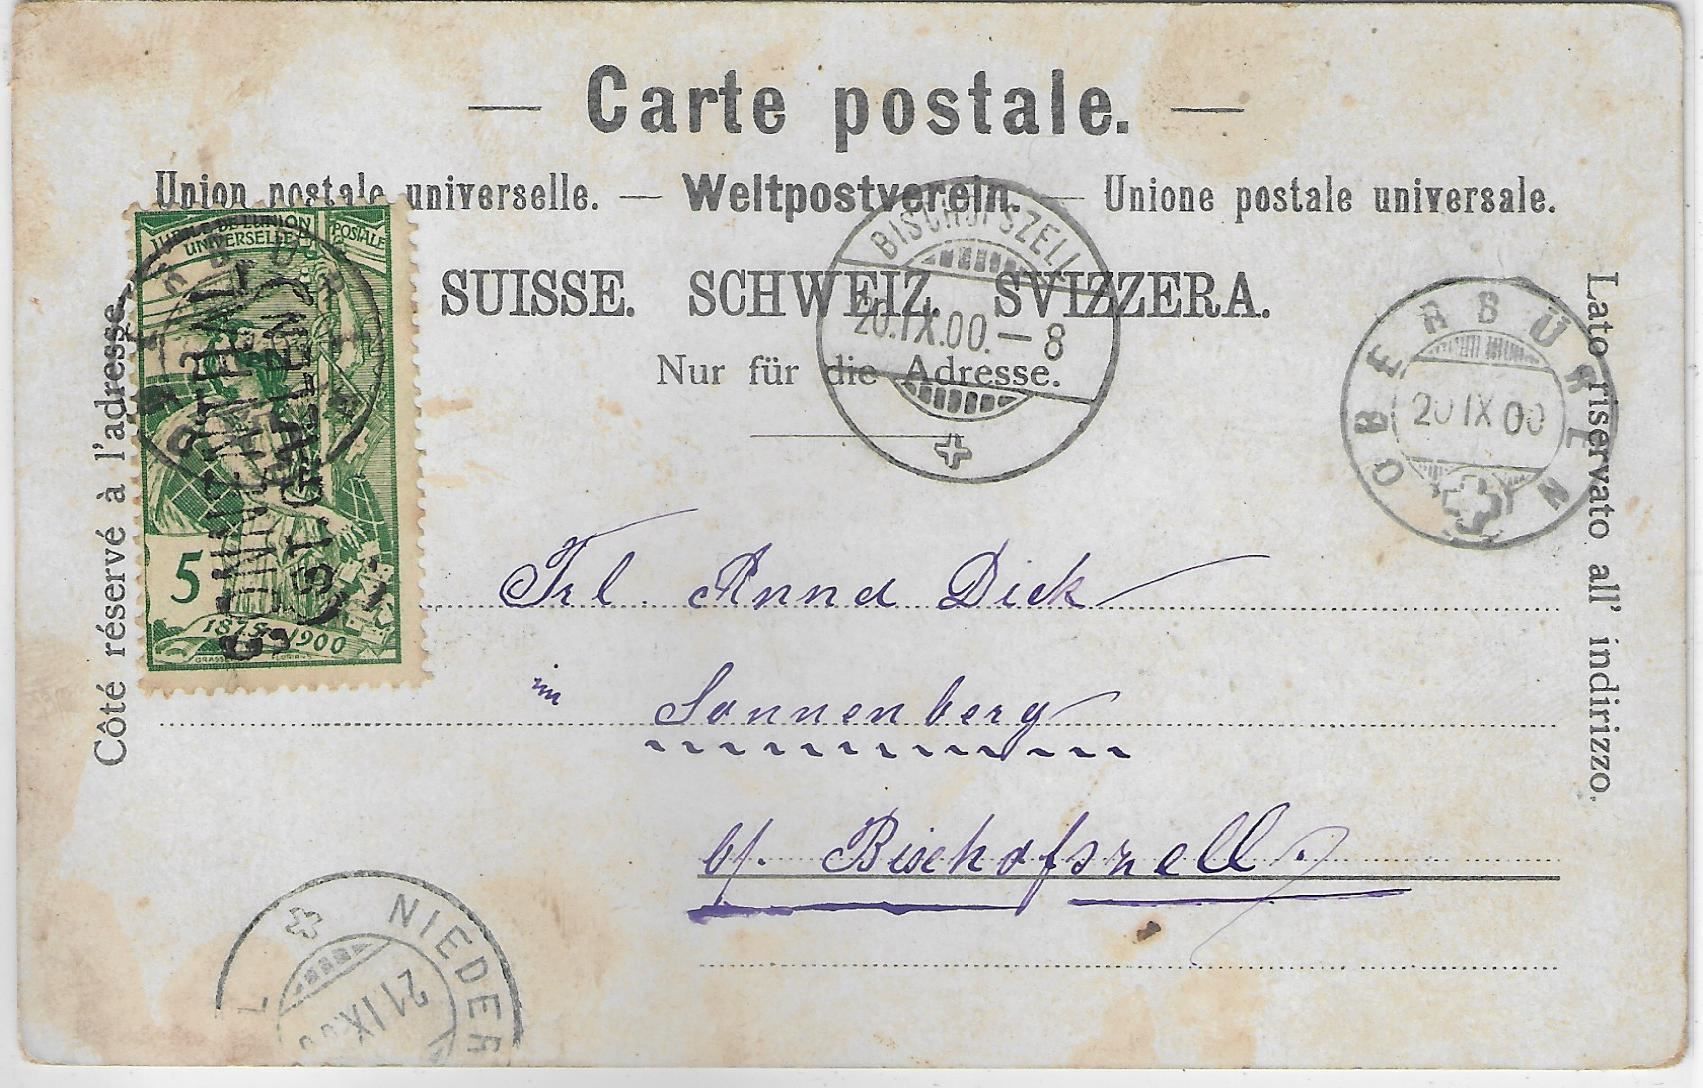 — Carte postale. —
Union postale universelle. — Weltpostverein. — Unione postale universale.
SUISSE. SCHWEIZ. SVIZZERA.
Nur für die Adresse.
Côté réservé à l'adresse.
Lato riservato all' indirizzo.
JUBILÉ DE L'UNION POSTALE
UNIVERSELLE
5
1875 1900
GRASSET FLORIAN
BISCHOFSZELL
20.IX.00.–8
OBERBÜREN
20 IX 00
Frl. Anna Dick
im Sonnenberg
b/. Bischofszell.
NIEDER
21 IX